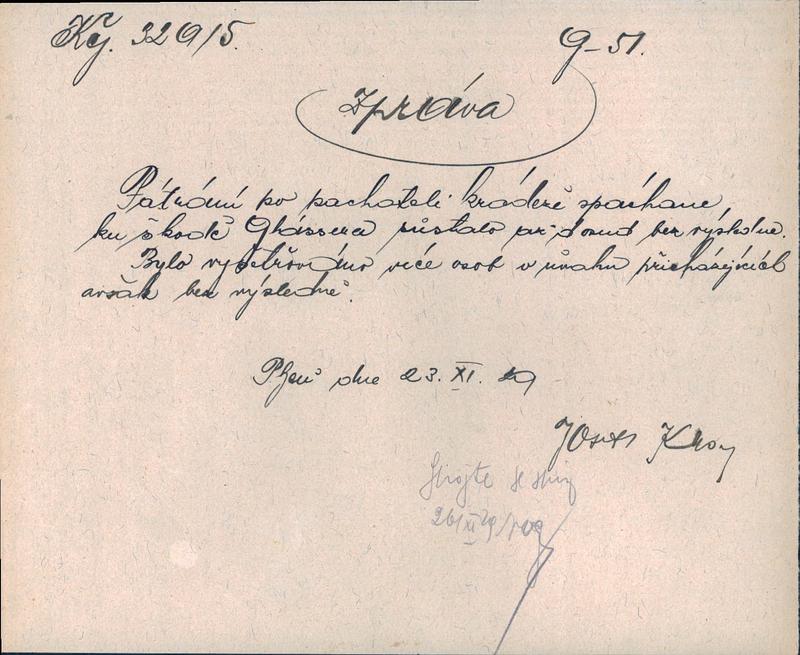 Kčj. 329/5. 9-51.
Zpráva
Pátrání po pachateli krádeže spáchané
ku škodě Glássera zůstalo až dosud bezvýsledné.
Bylo vyšetřováno více osob v úvahu přicházejících
avšak bezvýsledně.
Plzeň dne 23. XI. 29
Josef
26/XI 29